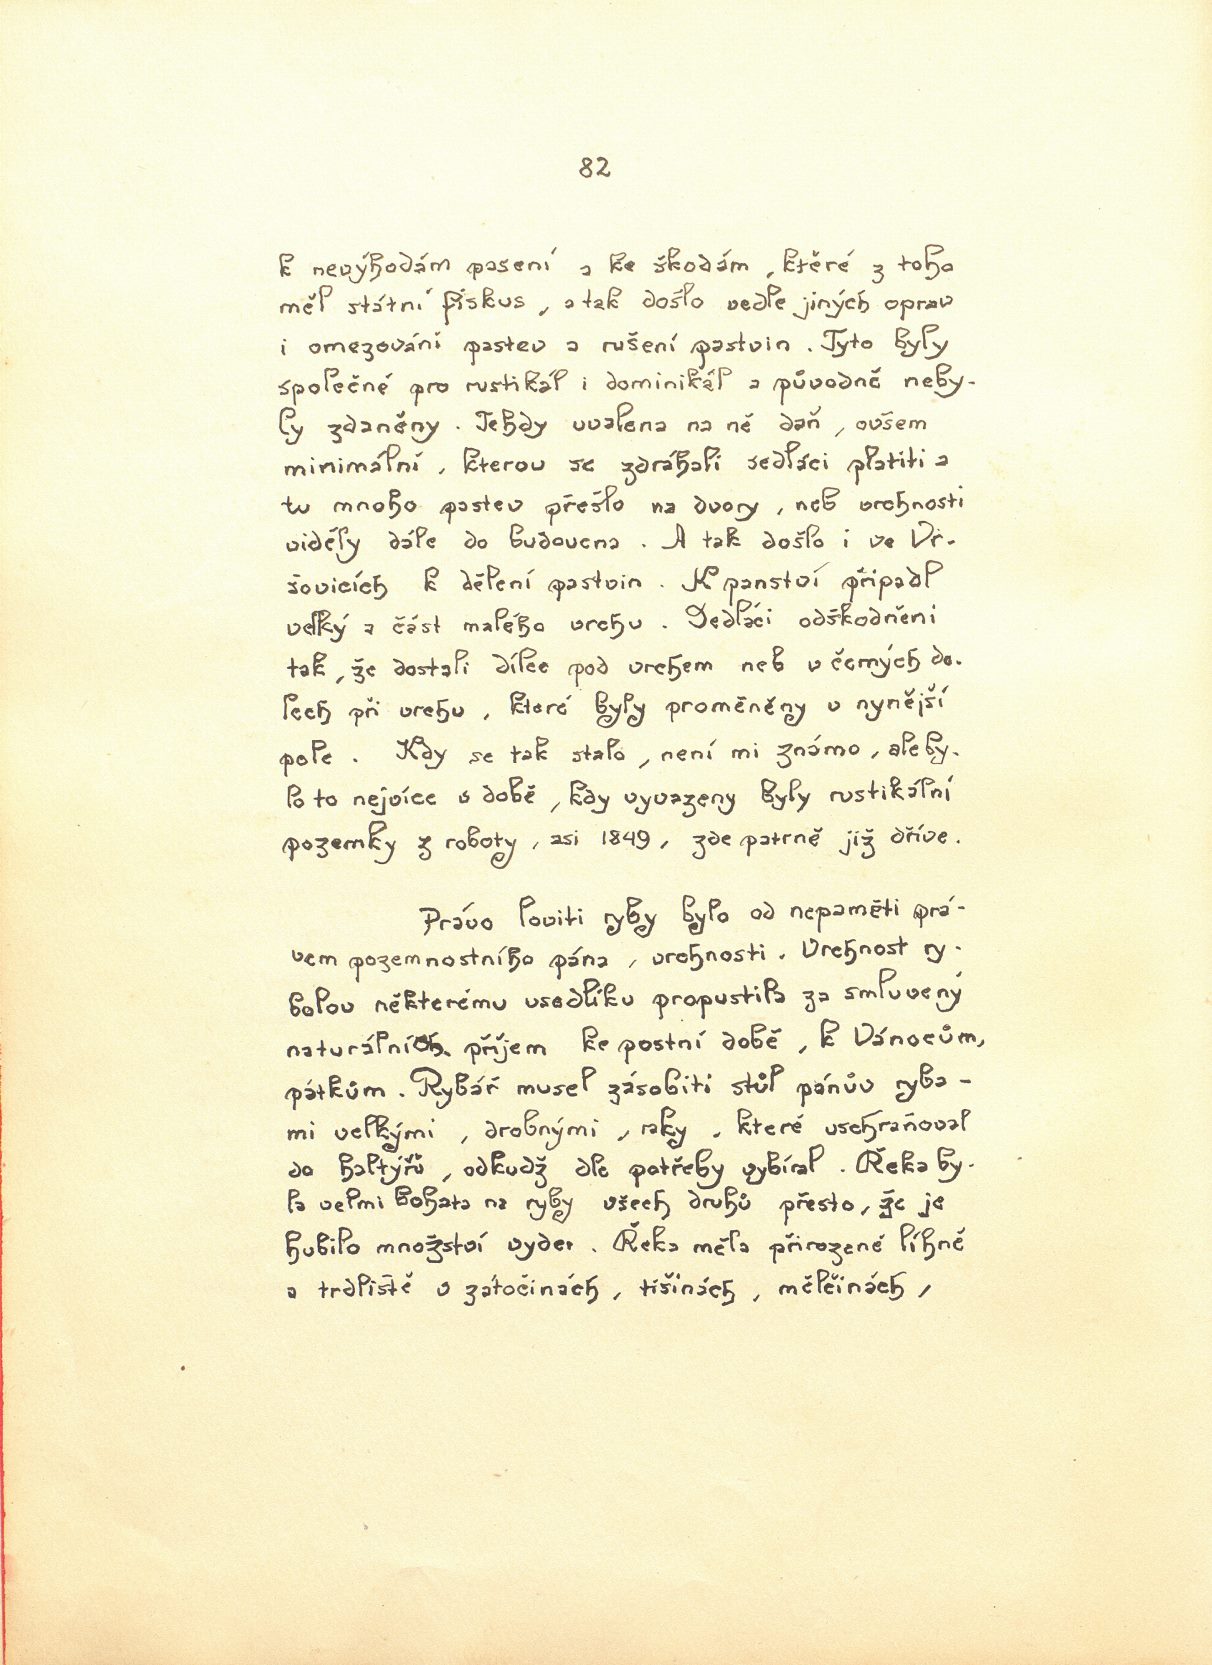 82
k nevýhodám pasení a ke škodám, které z toho
měl státní fiskus, a tak došlo vedle jiných oprav
i omezování pastev a rušení pastvin. Tyto byly
společné pro rustikál i dominikál a původně neby-
ly zdaněny. Tehdy uvalena na ně daň, ovšem
minimální, kterou se zdráhali sedláci platiti a
tu mnoho pastev přešlo na dvory, neb vrchnosti
viděly dále do budoucna. A tak došlo i ve Vr-
šovicích k dělení pastvin. K panství připadl
velký a část malého vrchu. Sedláci odškodněni
tak, že dostali dílce pod vrchem neb v černých do-
lech při vrchu, které byly proměněny v nynější
pole. Kdy se tak stalo, není mi známo, ale by-
lo to nejvíce v době, kdy vyvazeny byly rustikální
pozemky z roboty, asi 1849, zde patrně již dříve.
Právo loviti ryby bylo od nepaměti prá-
vem pozemnostního pána, vrchnosti. Vrchnost ry-
bolov některému usedlíku propustila za smluvený
naturální příjem ke postní době, k Vánocům,
pátkům. Rybář musel zásobiti stůl pánův ryba-
mi velkými, drobnými, raky, které uschraňoval
do haltýřů, odkudž dle potřeby vybíral. Řeka by-
la velmi bohata na ryby všech druhů přesto, že je
hubilo množství vyder. Řeka měla přirozené líhně
a trdliště v zátočinách, tišinách, mělčinách,